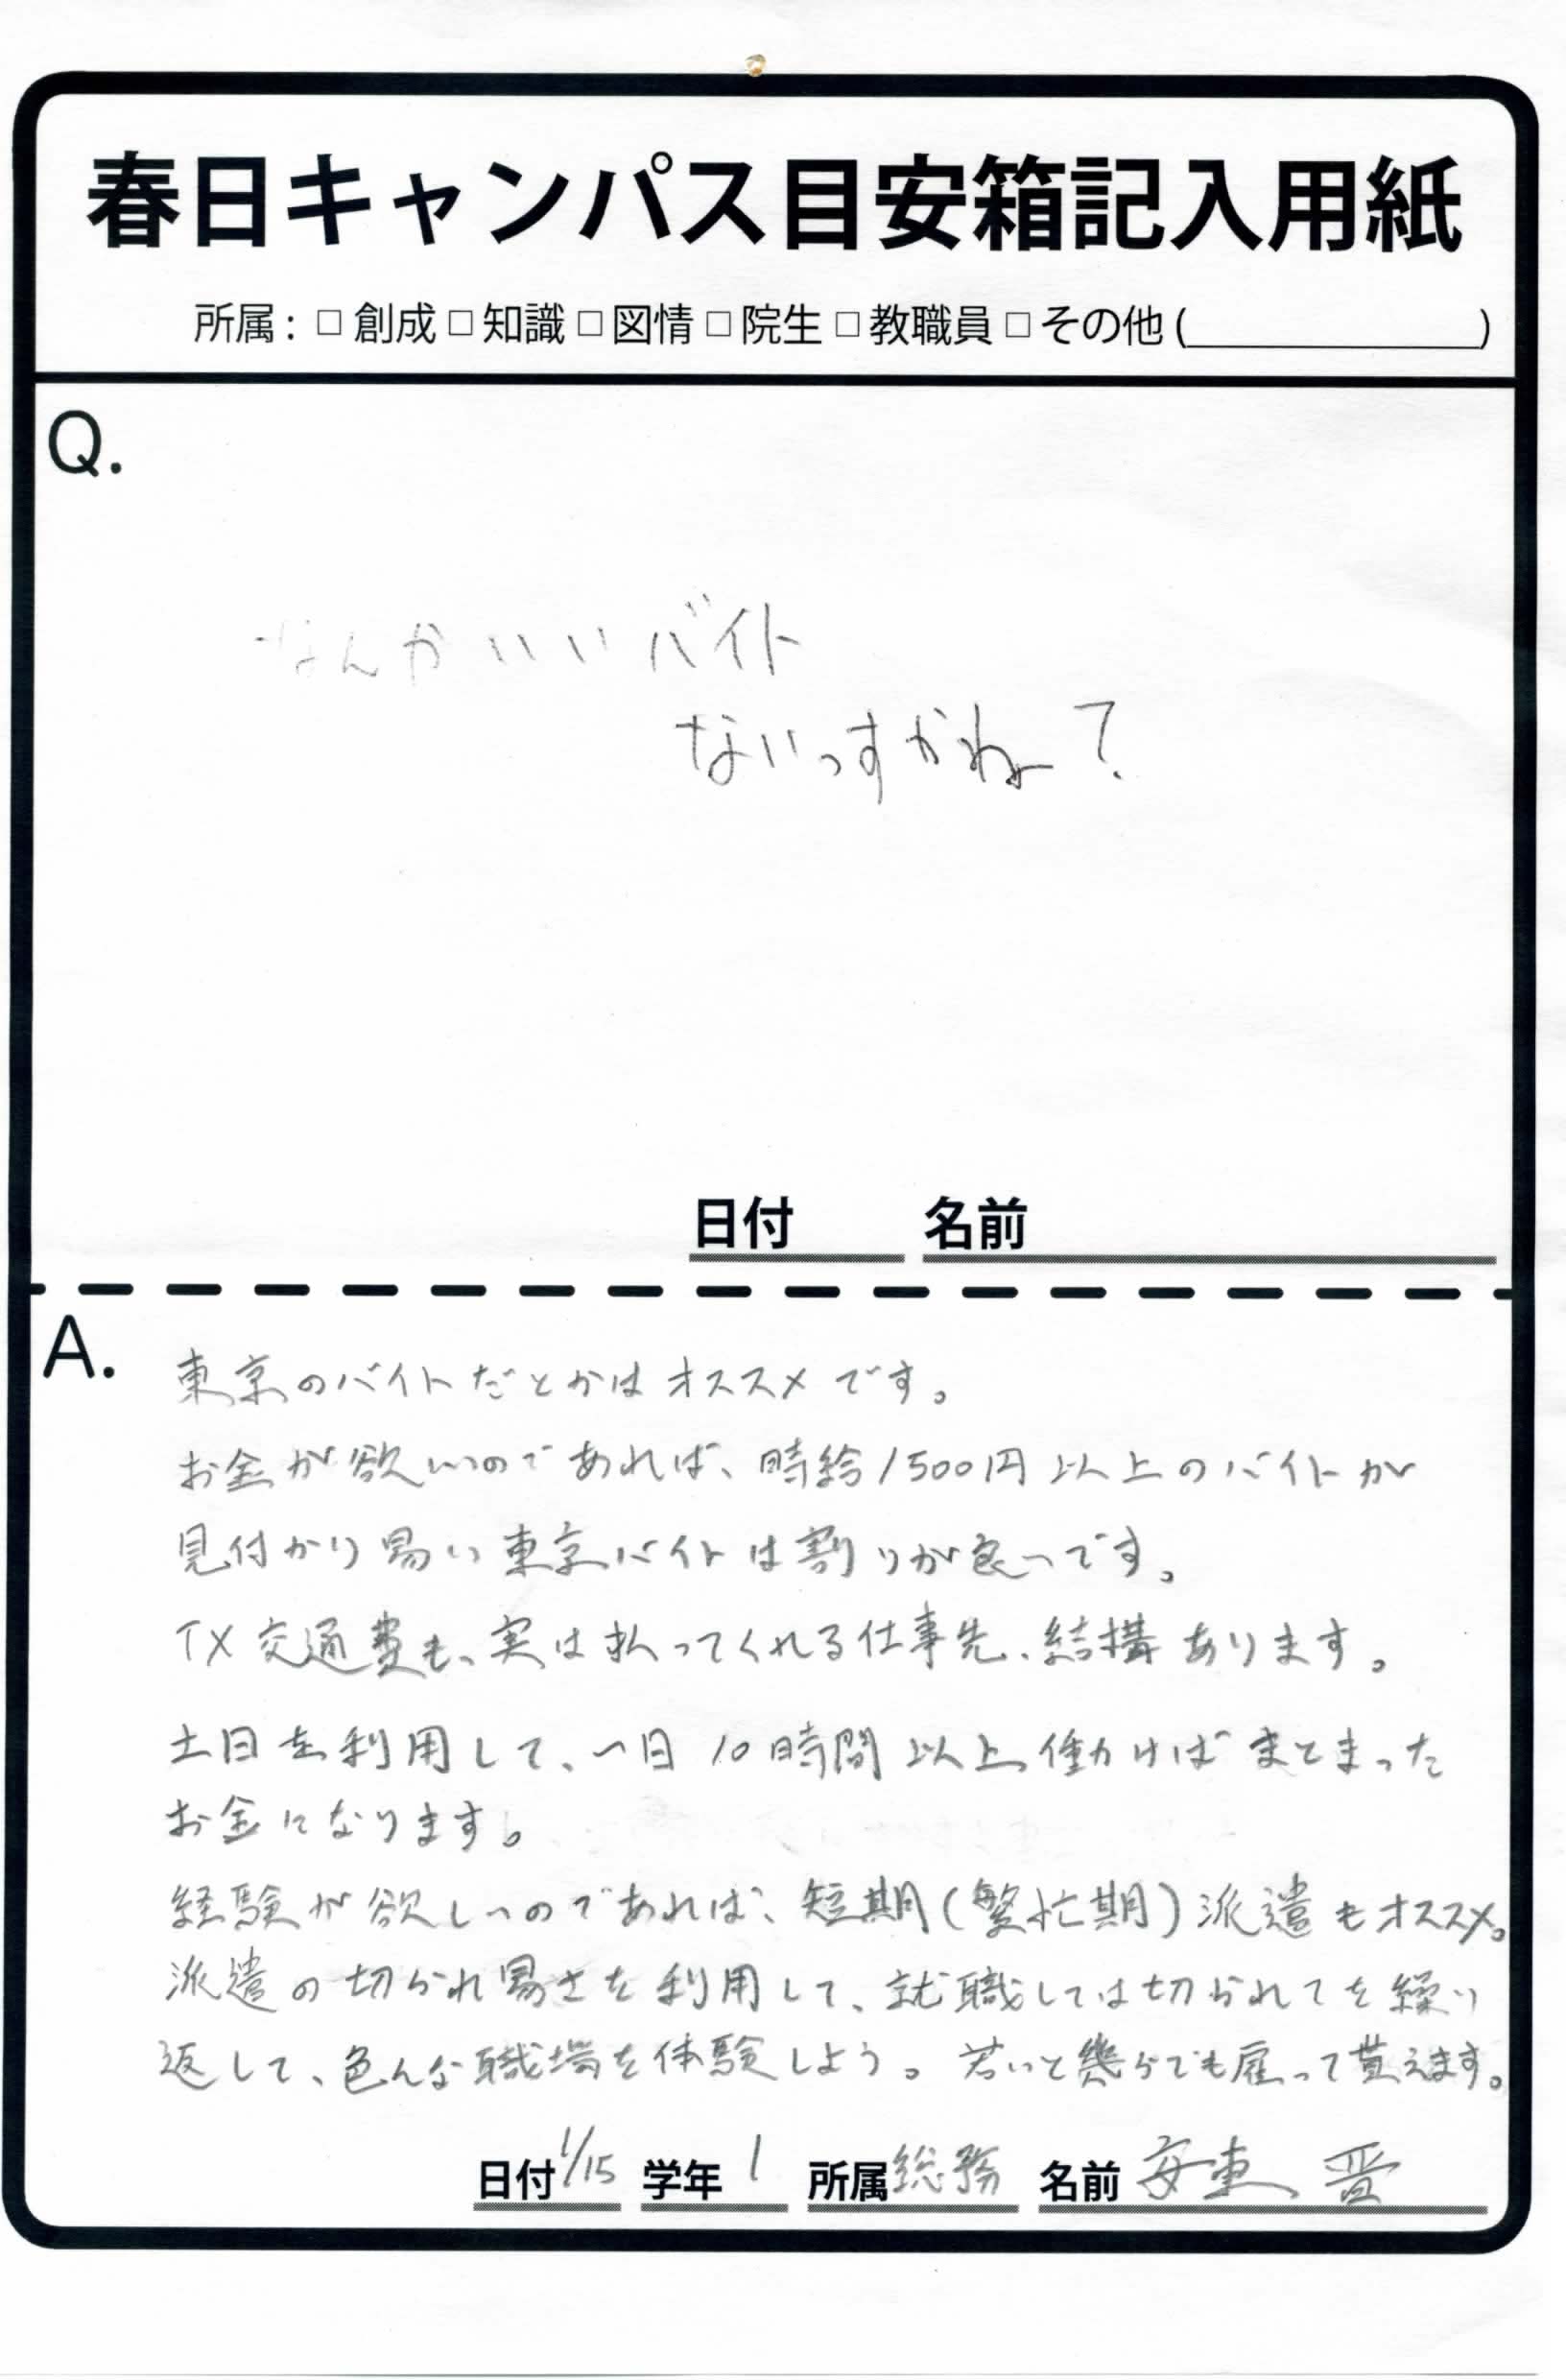 春日キャンパス目安箱記入用紙
所属：□ 創成 □ 知識 □ 図情 □ 院生 □ 教職員 □ その他 (　　　　　)
Q.
なんかいいバイト
ないっすかねー？
日付　名前
A.
東京のバイトだとかはオススメです。
お金が欲いのであれば、時給1500円以上のバイトが
見付かり易い東京バイトは割りが良いです。
TX交通費も、実は払ってくれる仕事先、結構あります。
土日を利用して、一日10時間以上働けばまとまった
お金になります。
経験が欲しいのであれば、短期(繁忙期)派遣もオススメ。
派遣の切られ易さを利用して、就職しては切られてを繰り
返して、色んな職場を体験しよう。若いと幾らでも雇って貰えます。
日付 1/15 学年 1 所属 総務 名前 安東 晋